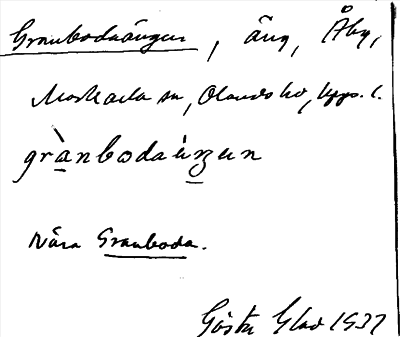 Granbodaängen, äng, Åby,
Morkarla sn, Olands hd, Upps. l.
grànbodaèŋen
Nära Granboda.
Gösta Glad 1937